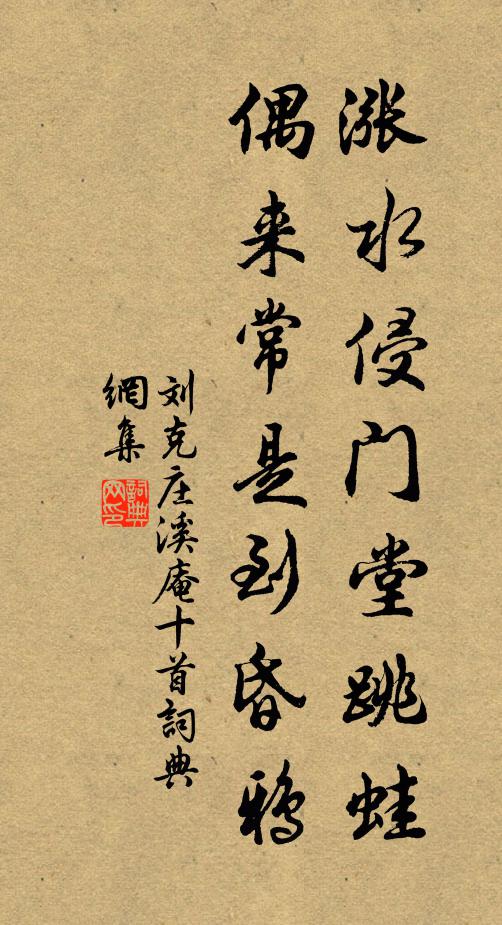 漲水侵门堂跳蛙
偶来常是到昏鴉
刘克庄溪庵十首詞典
網集
詞典網印